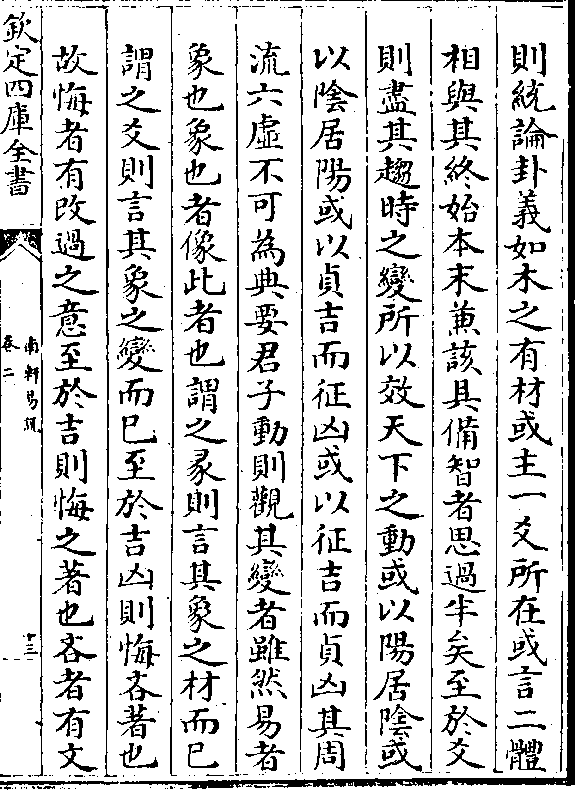 則統論卦義如木之有材或主一爻所在或言二體
相與其終始本末兼該具備智者思過半矣至於爻
則盡其趨時之變所以效天下之動或以陽居陰或
以陰居陽或以貞吉而征凶或以征吉而貞凶其周
流六虛不可為典要君子動則觀其變者雖然易者
象也象也者像此者也謂之彖則言其象之材而已
謂之爻則言其象之變而已至於吉凶則悔吝著也
故悔者有改過之意至於吉則悔之著也吝者有文
欽定四庫全書
南軒易說
卷二
十三